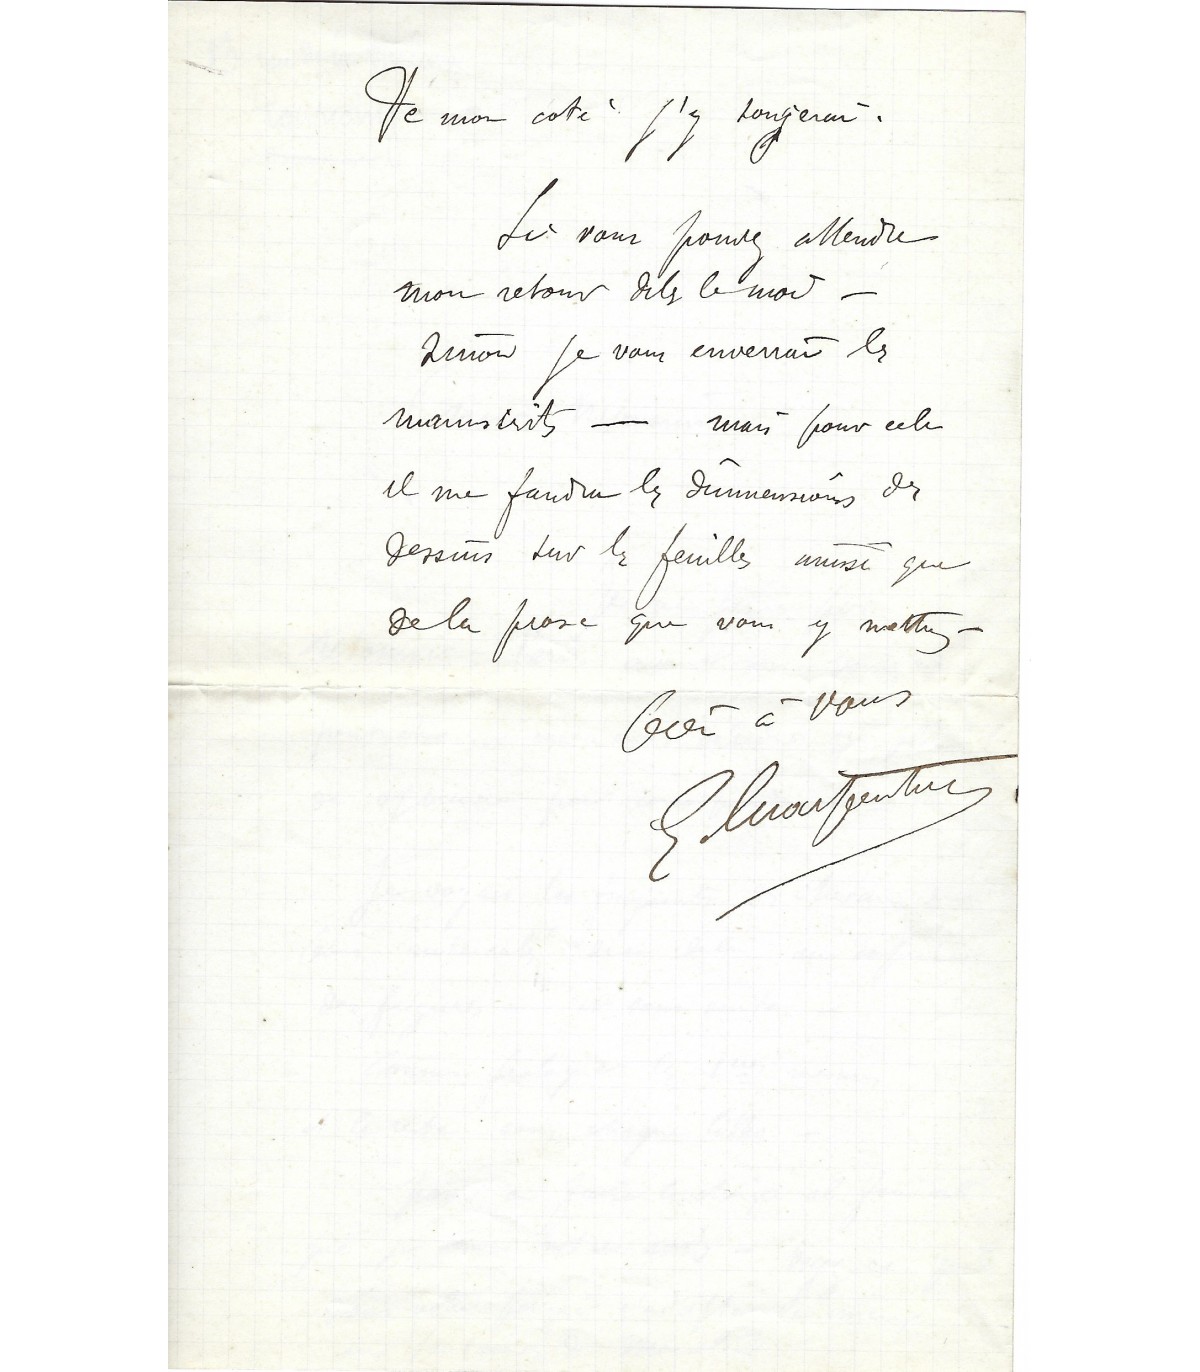 De mon coté j'y songerai.
Si vous pouvez attendre
mon retour dites le moi —
Sinon je vous enverrai les
manuscrits — mais pour cela
il me faudra les dimmensions des
dessins sur les feuilles aussi que
de la prose que vous y mettez —
à vous
G Charpentier